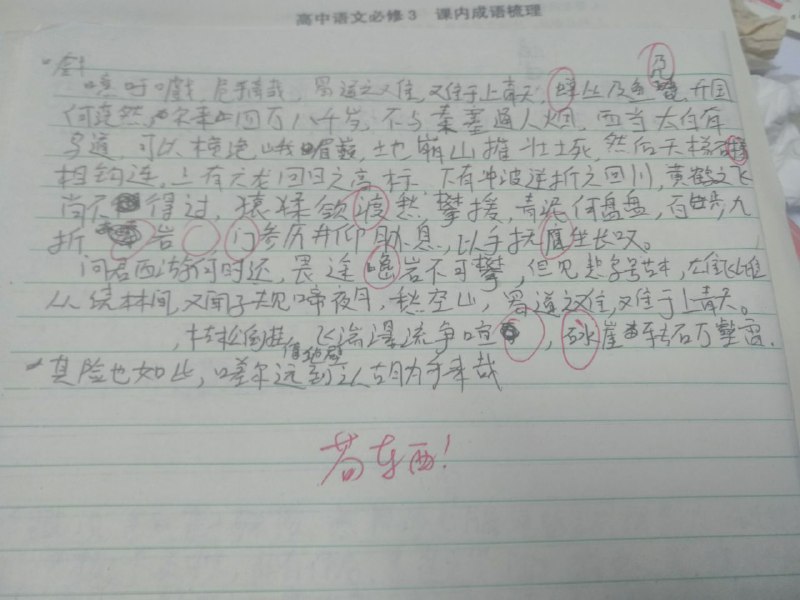 高中语文必修3 课内成语梳理
噫吁嚱,危乎高哉,蜀道之难,难于上青天,蚕丛及鱼凫,开国
何茫然,尔来四万八千岁,不与秦塞通人烟,西当太白有
鸟道,可以横绝峨眉巅,地崩山摧壮士死,然后天梯
相钩连,上有六龙回日之高标,下有冲波逆折之回川,黄鹤之飞
尚不得过,猿猱欲渡愁攀援,青泥何盘盘,百步九
折岩 门参历井仰胁息,以手抚膺坐长叹。
问君西游何时还,畏途 岩不可攀,但见悲鸟号古木,雄飞雌
从绕林间,又闻子规啼夜月,愁空山,蜀道之难,难于上青天。
枯松倒挂 飞湍瀑流争喧 ,砯崖转石万壑雷.
其险也如此,嗟尔远道之人胡为乎来哉